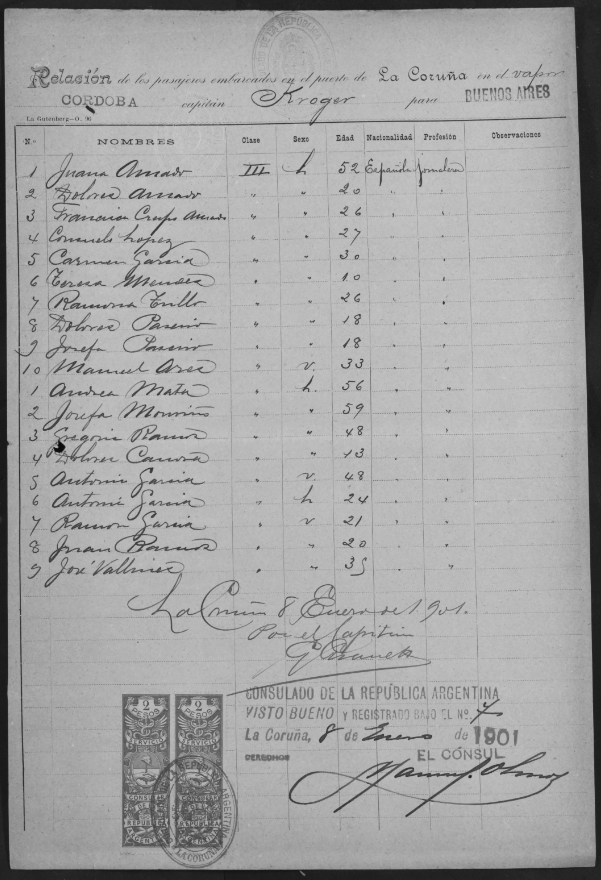 Relación de los pasajeros embarcados en el puerto de La Coruña en el vapor
CORDOBA capitán Kroger para BUENOS AIRES
La Gutenberg—O. 96
N.º NOMBRES Clase Sexo Edad Nacionalidad Profesión Observaciones
1 Juana Amado III h 52 Española Jornalera
2 Dolores Amado " " 20 " "
3 Francisca Crespo Amado " " 26 " "
4 Consuelo Lopez " " 27 " "
5 Carmen Garcia " " 30 " "
6 Teresa Mendez " " 10 " "
7 Ramona Trillo " " 26 " "
8 Dolores " " 18 " "
9 Josefa " " 18 " "
10 Manuel Ares " v. 33 " "
1 Andrea Mata " h. 56 " "
2 Josefa Mouriño " " 59 " "
3 Ramos " " 48 " "
4 Dolores " " 13 " "
5 Antonio Garcia " v. 48 " "
6 Garcia " h 24 " "
7 Ramon Garcia " v 21 " "
8 Juan Ramos " " 20 " "
9 José " " 35 " "
La Coruña 8 Enero de 1901.
Por el Capitán
CONSULADO DE LA REPÚBLICA ARGENTINA
VISTO BUENO Y REGISTRADO BAJO EL Nº. 7
La Coruña, 8 de Enero de 1901
DERECHOS EL CÓNSUL
2 2
PESOS PESOS
SERVICIO SERVICIO
CONSULAR CONSULAR
DE LA DE LA
REPÚBLICA REPÚBLICA
ARGENTINA ARGENTINA
LA CORUÑA